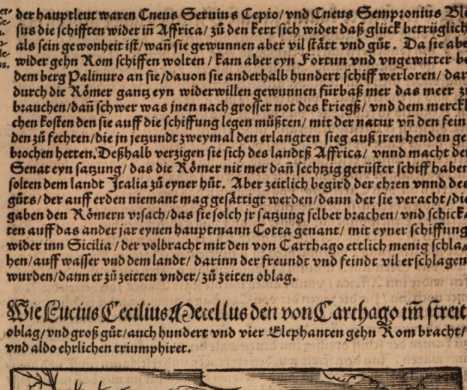 der hauptleut waren Cneus Seruius Cepio/ vnd Cneus Sempronius Ble
sius die schifften wider in̄ Affrica/ zů den kert sich wider daß glück betrüglich
als sein gewonheit ist/ wañ sie gewunnen aber vil stätt vnd gůt. Da sie abe
wider gehn Rom schiffen wolten/ kam aber eyn Fortun vnd vngewitter be
dem berg Palinuro an sie/ dauon sie anderhalb hundert schiff werloren/ dar
durch die Römer gantz eyn widerwillen gewunnen fürbaß mer das meer zů
brauchen/ dañ schwer was jnen nach grosser not des kriegß/ vnd dem merckl
chen kosten den sie auff die schiffung legen můßten/ mit der natur vñ den fein
den zů fechten/ die in jetzundt zweymal den erlangten sieg auß jren henden ge
brochen hetten. Deßhalb verzigen sie sich des landtß Affrica/ vnnd macht de
Senat eyn satzung/ das die Römer nit mer dañ sechtzig gerüster schiff haben
solten dem landt Italia zů eyner hůt. Aber zeitlich begird der ehren vnnd des
gůts/ der auff erden niemant mag gesättigt werden/ dann der sie veracht/ die
gaben den Römern vrsach/ das sie solch jr satzung selber brachen/ vnd schick
ten auff das ander jar eynen hauptmann Cotta genant/ mit eyner schiffung
wider inn Sicilia/ der volbracht mit den von Carthago ettlich menig schla
hen/ auff wasser vnd dem landt/ darinn der freundt vnd feindt vil erschlagen
wurden/ dann er zů zeitten vnder/ zů zeiten oblag.
Wie Lucius Cecilius Metellus den von Carthago im̄ streit
oblag/ vnd groß gůt/ auch hundert vnd vier Elephanten gehn Rom bracht/
vnd aldo ehrlichen triumphiret.